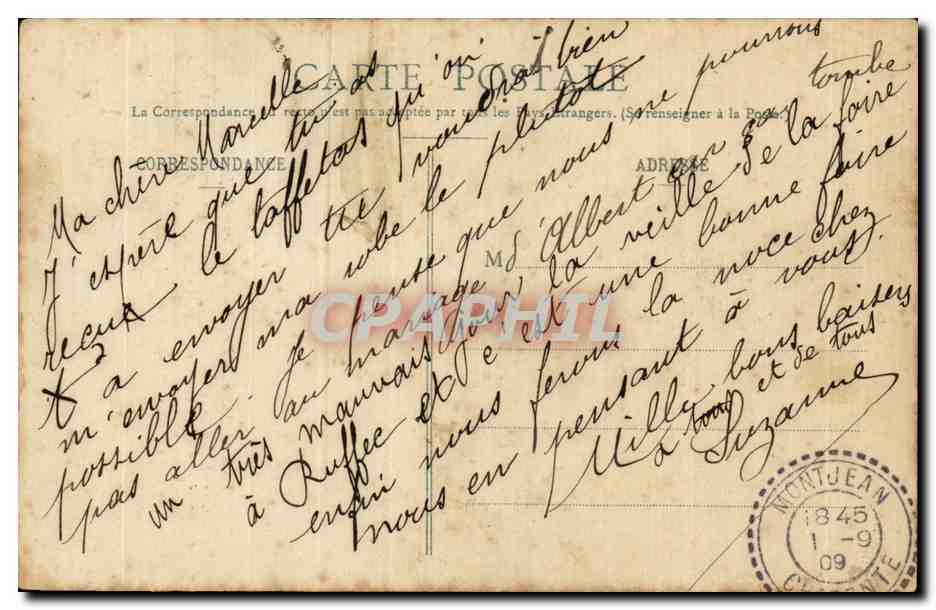 CARTE POSTALE
La Correspondance au recto n'est pas acceptée par tous les Pays étrangers. (Se renseigner à la Poste.)
CORRESPONDANCE
ADRESSE
M
Ma chère Marcelle
J'espère que tu as
reçu le taffetas qu'on
t'a envoyer tu voudrai bien
m'envoyer ma robe le plutôt
possible. Je pense que nous ne pourrons
pas aller au mariage d'Albert car ça tombe
un très mauvais jour la veille de la foire
à Ruffec et c'est une bonne foire
enfin nous ferons la noce chez
nous en pensant à vous.
Mille bons baisers
à tous et de tous
Suzanne
MONTJEAN
18 45
1 -9
09
CHARENTE
CPAPHIL